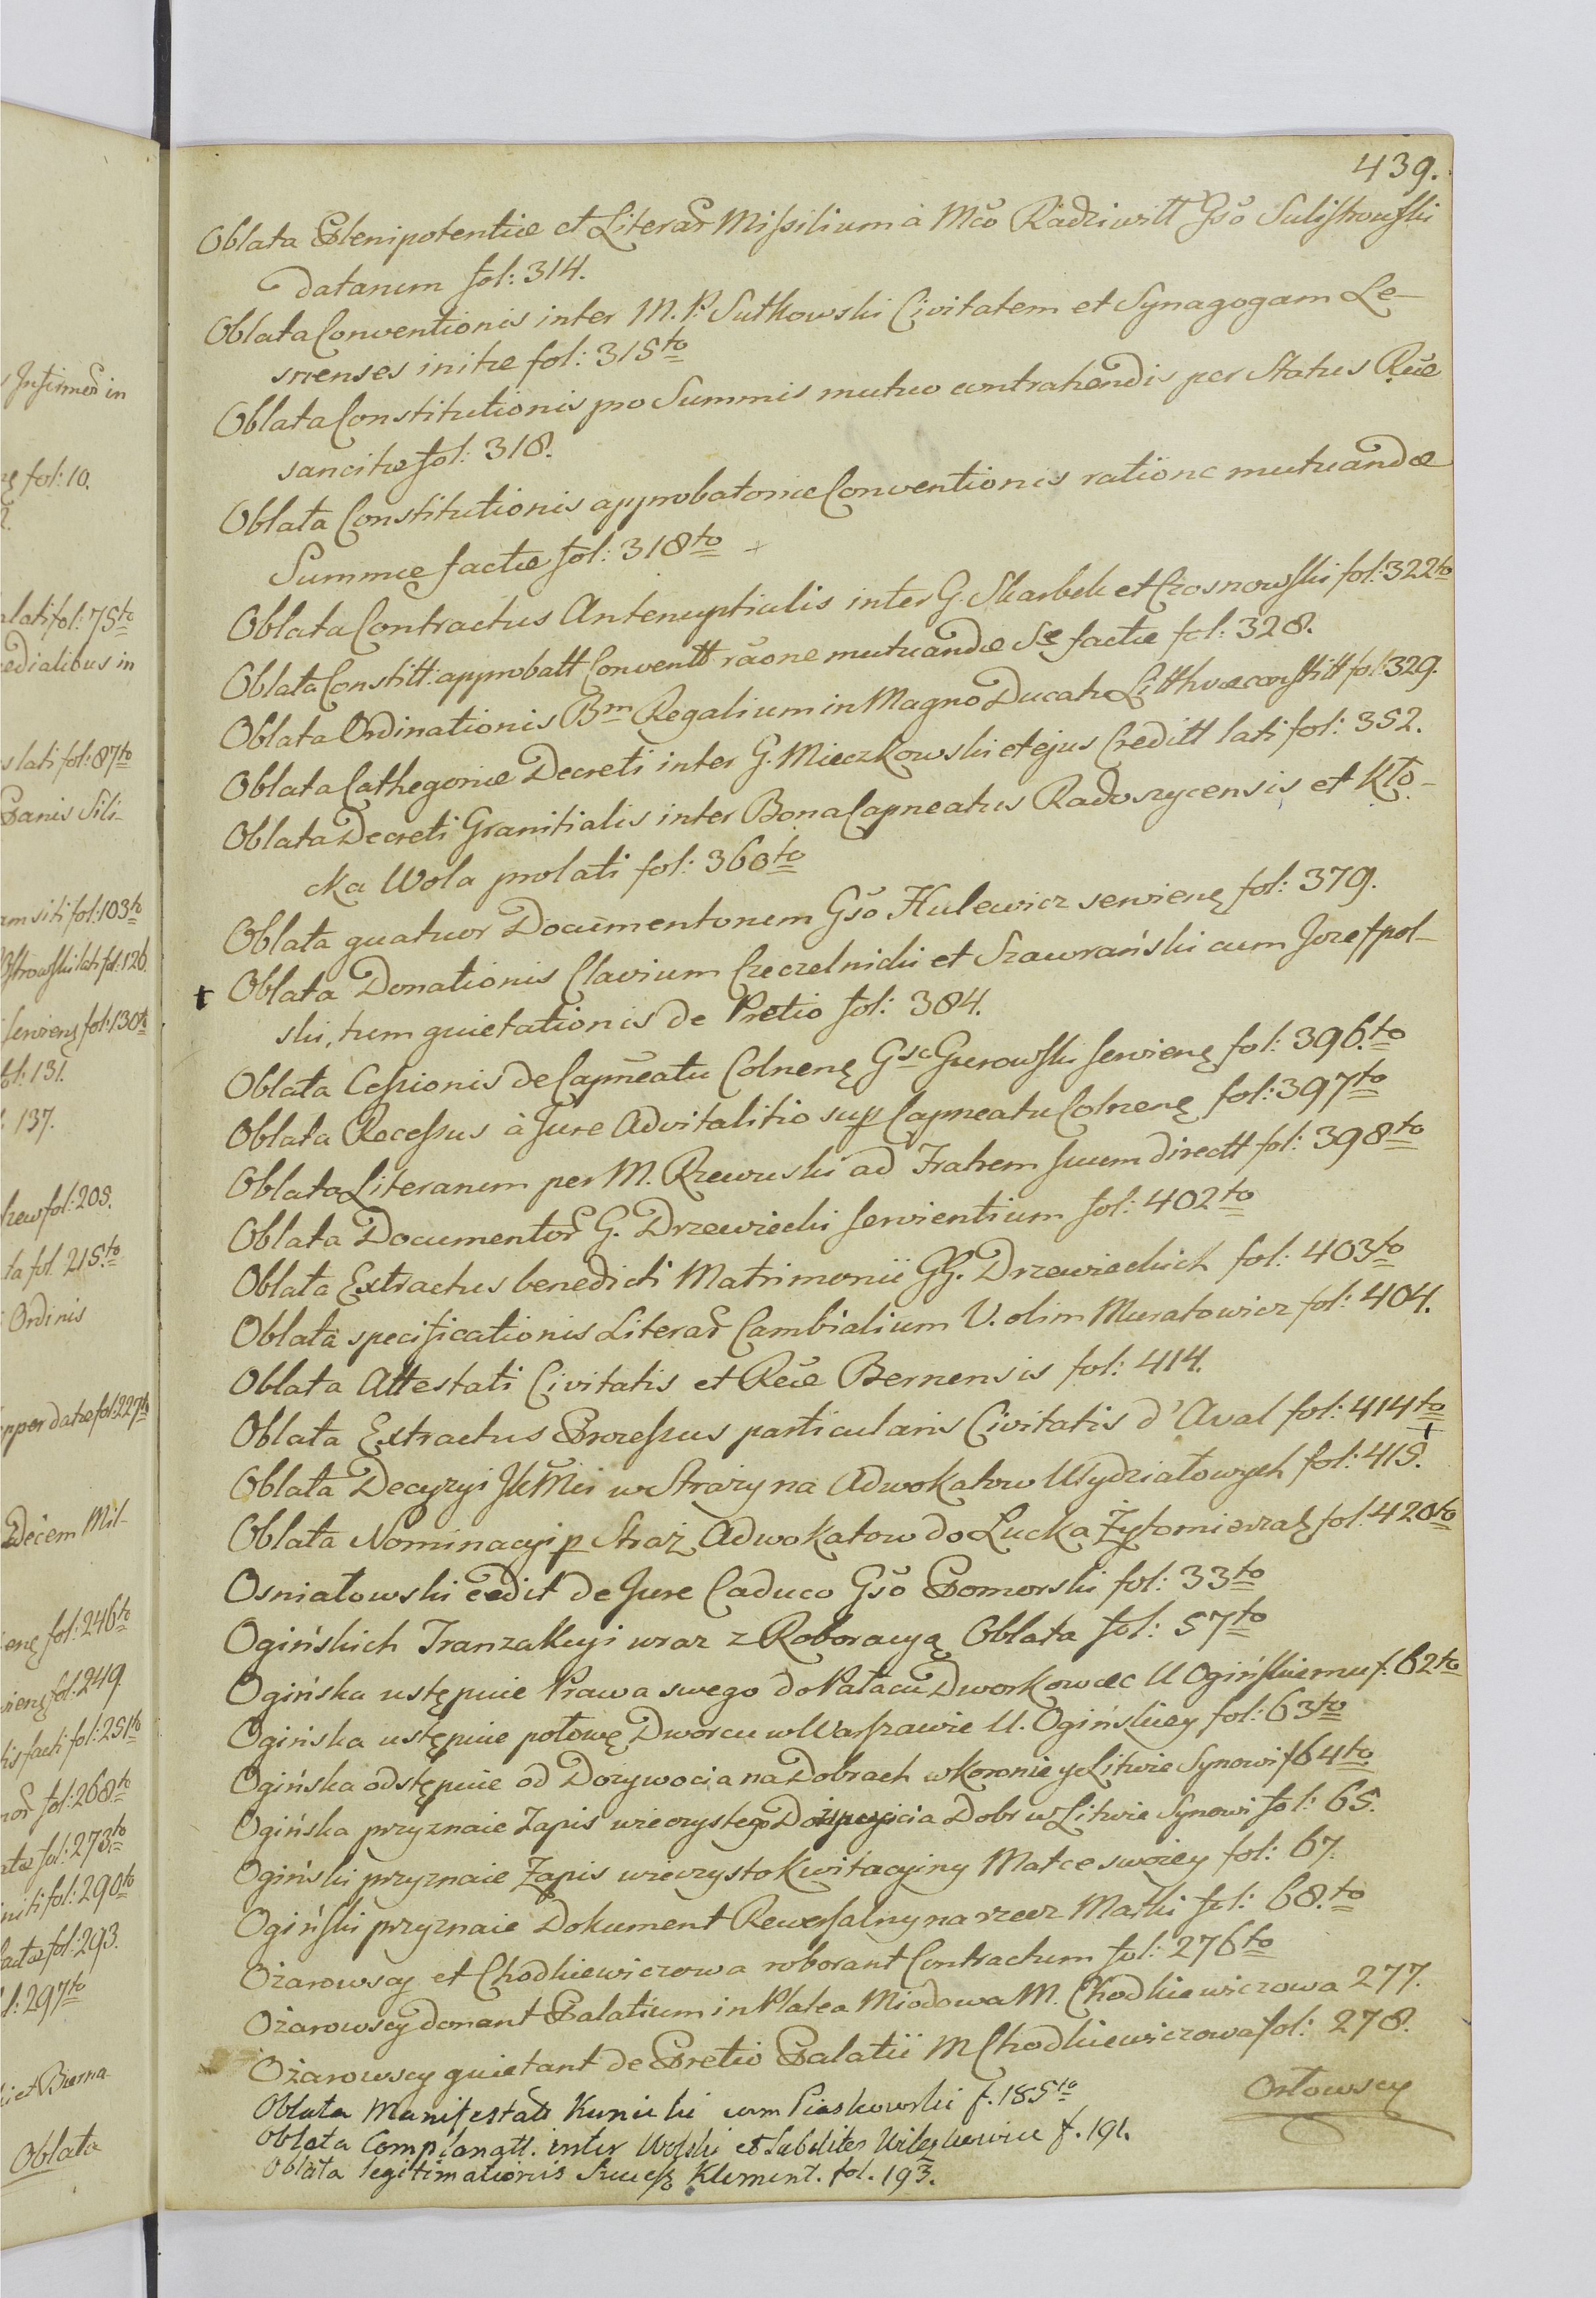 439.
Oblata Plenipotentiæ et Literar Missilium à Mco Radziwiłł Gso Sulistrowski
datarum fol: 314.
Oblata Conventionis inter M. P. Sułkowski Civitatem et Synagogam Le-
snenses initæ fol: 315to
Oblata Constitutionis pro Summis mutuo contrahendis per Status Rũe
sancitæ fol: 318.
Oblata Constitutionis approbatoriæ Conventionis ratione mutuandæ
Summæ factæ fol: 318to
Oblata Contractus Antenuptialis inter G. Skarbek et Czosnowski fol: 322to
Oblata Constitt: approbatt Conventt raõne mutuandæ Sæ factæ fol: 328.
Oblata Ordinationis Bm Regalium in Magno Ducatu Litthvæ constitt fol: 329.
Oblata Cathegoriæ Decreti inter G. Mieczkowski et ejus Creditt lati fol: 352.
Oblata Decreti Granitialis inter Bona Capneatus Radoszycensis et Kło-
cka Wola prolati fol: 360to
Oblata quatuor Documentorum Gso Hulewicz servienę fol: 379.
+ Oblata Donationis Clavium Czeczelnicki et Szawrański cum Jozefpol-
ski, tum quietationis de Pretio fol: 384.
Oblata Cessionis de Capneatu Colnenę Gsæ Gurowski servienę fol: 396.to
Oblata Recessus à Jure Advitalitio sup Capneatu Colnenę fol: 397to
Oblata Literarum per M. Rzewuski ad Fratrem suum directt fol: 398to
Oblata Documentor G. Drzewiecki servientium fol: 402to
Oblata Extractus benedicti Matrimonii GG. Drzewieckich fol: 403to
Oblata specificationis Literar Cambialium V. olim Muratowicz fol: 404.
Oblata Attestati Civitatis et Rcæ Bernensis fol: 414.
Oblata Extractus Processus particularis Civitatis d'Aval fol: 414to
Oblata Decyzyi JkMci w Straży na Adwokatow Wydziałowych fol: 415.
Oblata Nominacyi p Straż Adwokatow do Łucka Żytomierza fol: 420to
Osniatowski cedit de Jure Caduco Gso Pomorski fol: 33to
Ogińskich Tranzakcyi wraz z Roboracyą Oblata fol: 57to
Ogińska ustępuie Prawa swego do Pałacu Dworkowcec U Ogińskiemu f. 62to
Ogińska ustępuie połowę Dworcu w Warszawie U. Ogińskiey fol: 63to
Ogińska odstępuie od Dozywocia na Dobrach w Koronie y Litwie Synowi f 64to
Ogińska przyznaie Zapis wieczystego Dożywocia Dobr w Litwie Synowi fol: 65.
Ogiński przyznaie Zapis wieczysto Kwitacyiny Matce swoiey fol: 67.
Ogiński przyznaie Dokument Rewersalny na rzecz Matki fol: 68.to
Ożarowscy et Chodkiewiczowa roborant Contractum fol: 276to
Ożarowscy donant Palatium in Platea Miodowa M. Chodkiewiczowa 277.
Ożarowscy quietant de Pretio Palatii M Chodkiewiczowa fol: 278.
Orłowscy
Oblata Manifestatt Kunicki cum Piaskowski f. 185to
Oblata Complanatt. inter Wolski et Subditos f. 191.
Oblata legitimationis Success Klement. fol. 193.